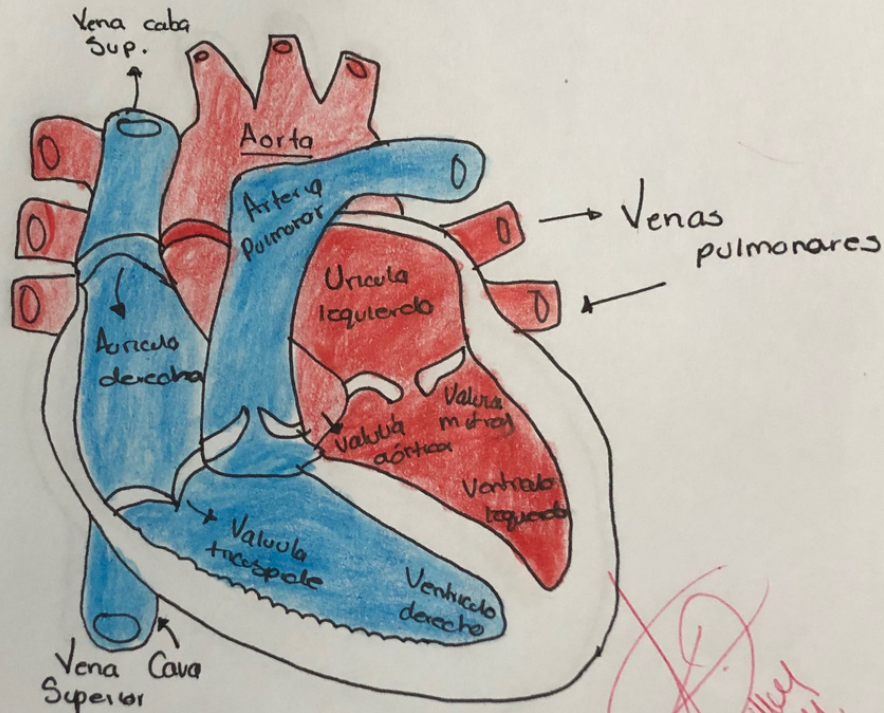 Vena caba
Sup.
Aorta
Arteria
Pulmonar
Venas
pulmonares
Uricula
Izquierda
Auricula
derecha
Valvula
mitral
Valvula
aórtica
Ventriculo
Izquierdo
Valvula
tricuspide
Ventriculo
derecho
Vena Cava
Superior